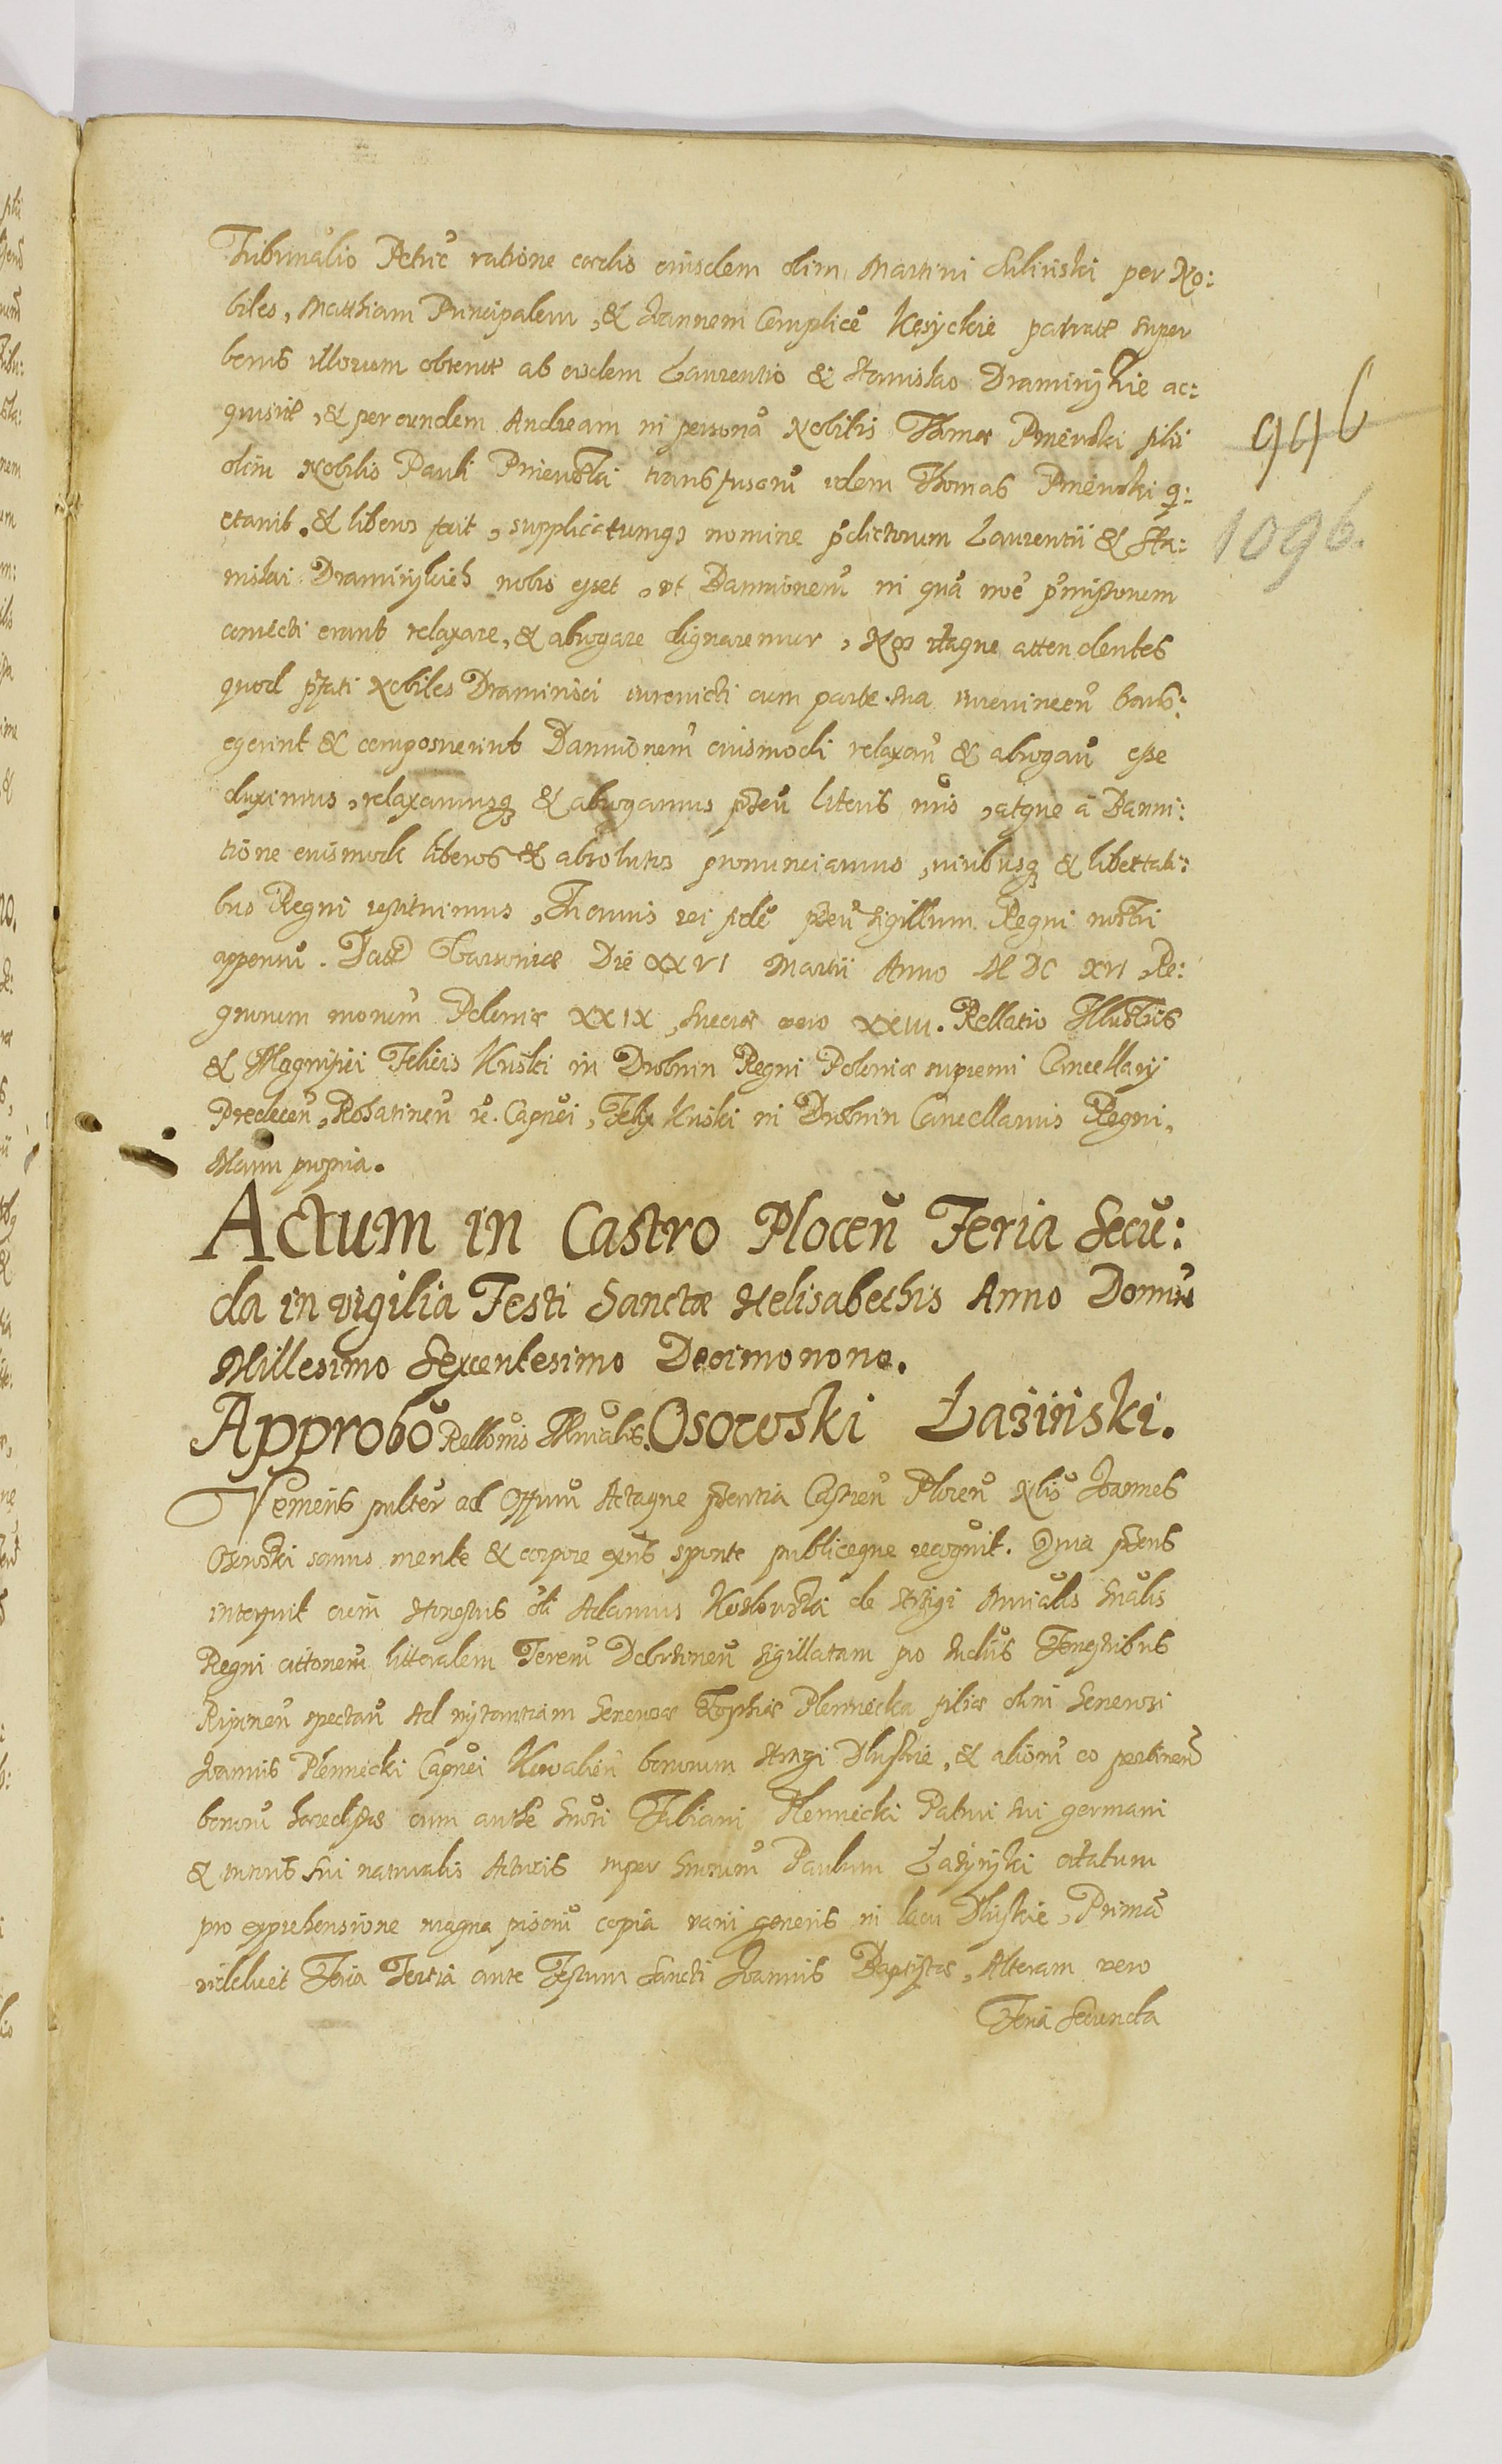 Tribunalis Petric ratione caedis eiusdem olim Martini Suliński per No:
biles, Matthiam Principalem, & Joannem Complicē Kęsyckie patratæ super
bonis illorum obtent ab eisdem Laurentio & Stanislao Draminskie ac:
quisit, & per eundem Andream in personā Nobilis Thomæ Pniewski filii
olim Nobilis Pauli Pniewski transfusarū idem Thomas Pniewski q:
etavit, & liberos fecit, supplicatumq3 nomine p̄dictorum Laurentii & Sta:
nislai Draminskich nobis esset, ut Bannionem̄ in quā noē p̄missorum
convicti erant relaxare, & abrogare dignaremur, Nos itaque attendentes
quod p̄fati Nobiles Draminsci iurevicti cum parte sua iurevincen̄ bonis:
egerint & composuerint Bannionem̄ eiusmodi relaxan̄ & abrogan̄ esse
duximus, relaxamusq3 & abrogamus p̄sen̄ literis nr̄is, atque à Banni:
tione eiusmodi liberos & absolutos pronunciamus, iuribusq3 & libertati:
bus Regni restituimus, In cuius rei fidē p̄sen̄ Sigillum Regni nostri
appensū. Dat Varsoviæ Die XXVI Martii Anno M DC XVI, Re:
gnorum nrorum̄ Poloniæ XXIX, Sueciæ vero XXIII. Rellatio Illustris
& Magnifici Felicis Kriski in Drobnin Regni Poloniæ supremi Cancellarij
Predecen̄, Rohatinen̄ &. Capnei, Felix Kriski in Drobnin Cancellarius Regni,
Manu propria.
Actum in Castro Plocen̄ Feria Secū:
da in vigilia Festi Sanctæ Helisabethis Anno Domin̄i
Millesimo Sexcentesimo Decimonono.
Approbō Rellōnis Mn̄ialis. Osowski Łaziński.
Veniens psnlter ad Offium Actaque p̄sentia Castren̄ Plocen̄ Nblis Joannes
Osowski sanus mente & corpore exns sponte publiceque recognvit. Quia p̄sens
interfuit cum Honestus oli Adamus Kozłowski de Strzigi Mnialis Gnalis
Regni cittonem̄ litteralem Terrem̄ Dobrzinen̄ sigillatam pro Iudiis Terrestribus
Ripinen̄ spectan̄ Ad instantiam Generosæ Zophiæ Plemiecka filiæ olim Generosi
Joannis Plemiecki Capnei Kowalien̄ bonorum Strzigi Dłuskie, & aliorum̄ eo pertinen̄
bonorū hæredissæ cum authē Gnosi Fabiani Plemiecki Patrui sui germani
& tutoris sui naturalis Actricis super Gnosum̄ Paulum Łazyński citatum
pro expræhensione magna pisciū copia varii generis in lacu Dłuskie, Primā
videlicet Feria Tertia ante Festum Sancti Joannis Baptistæ, Alteram vero
Feria Secunda
1096.